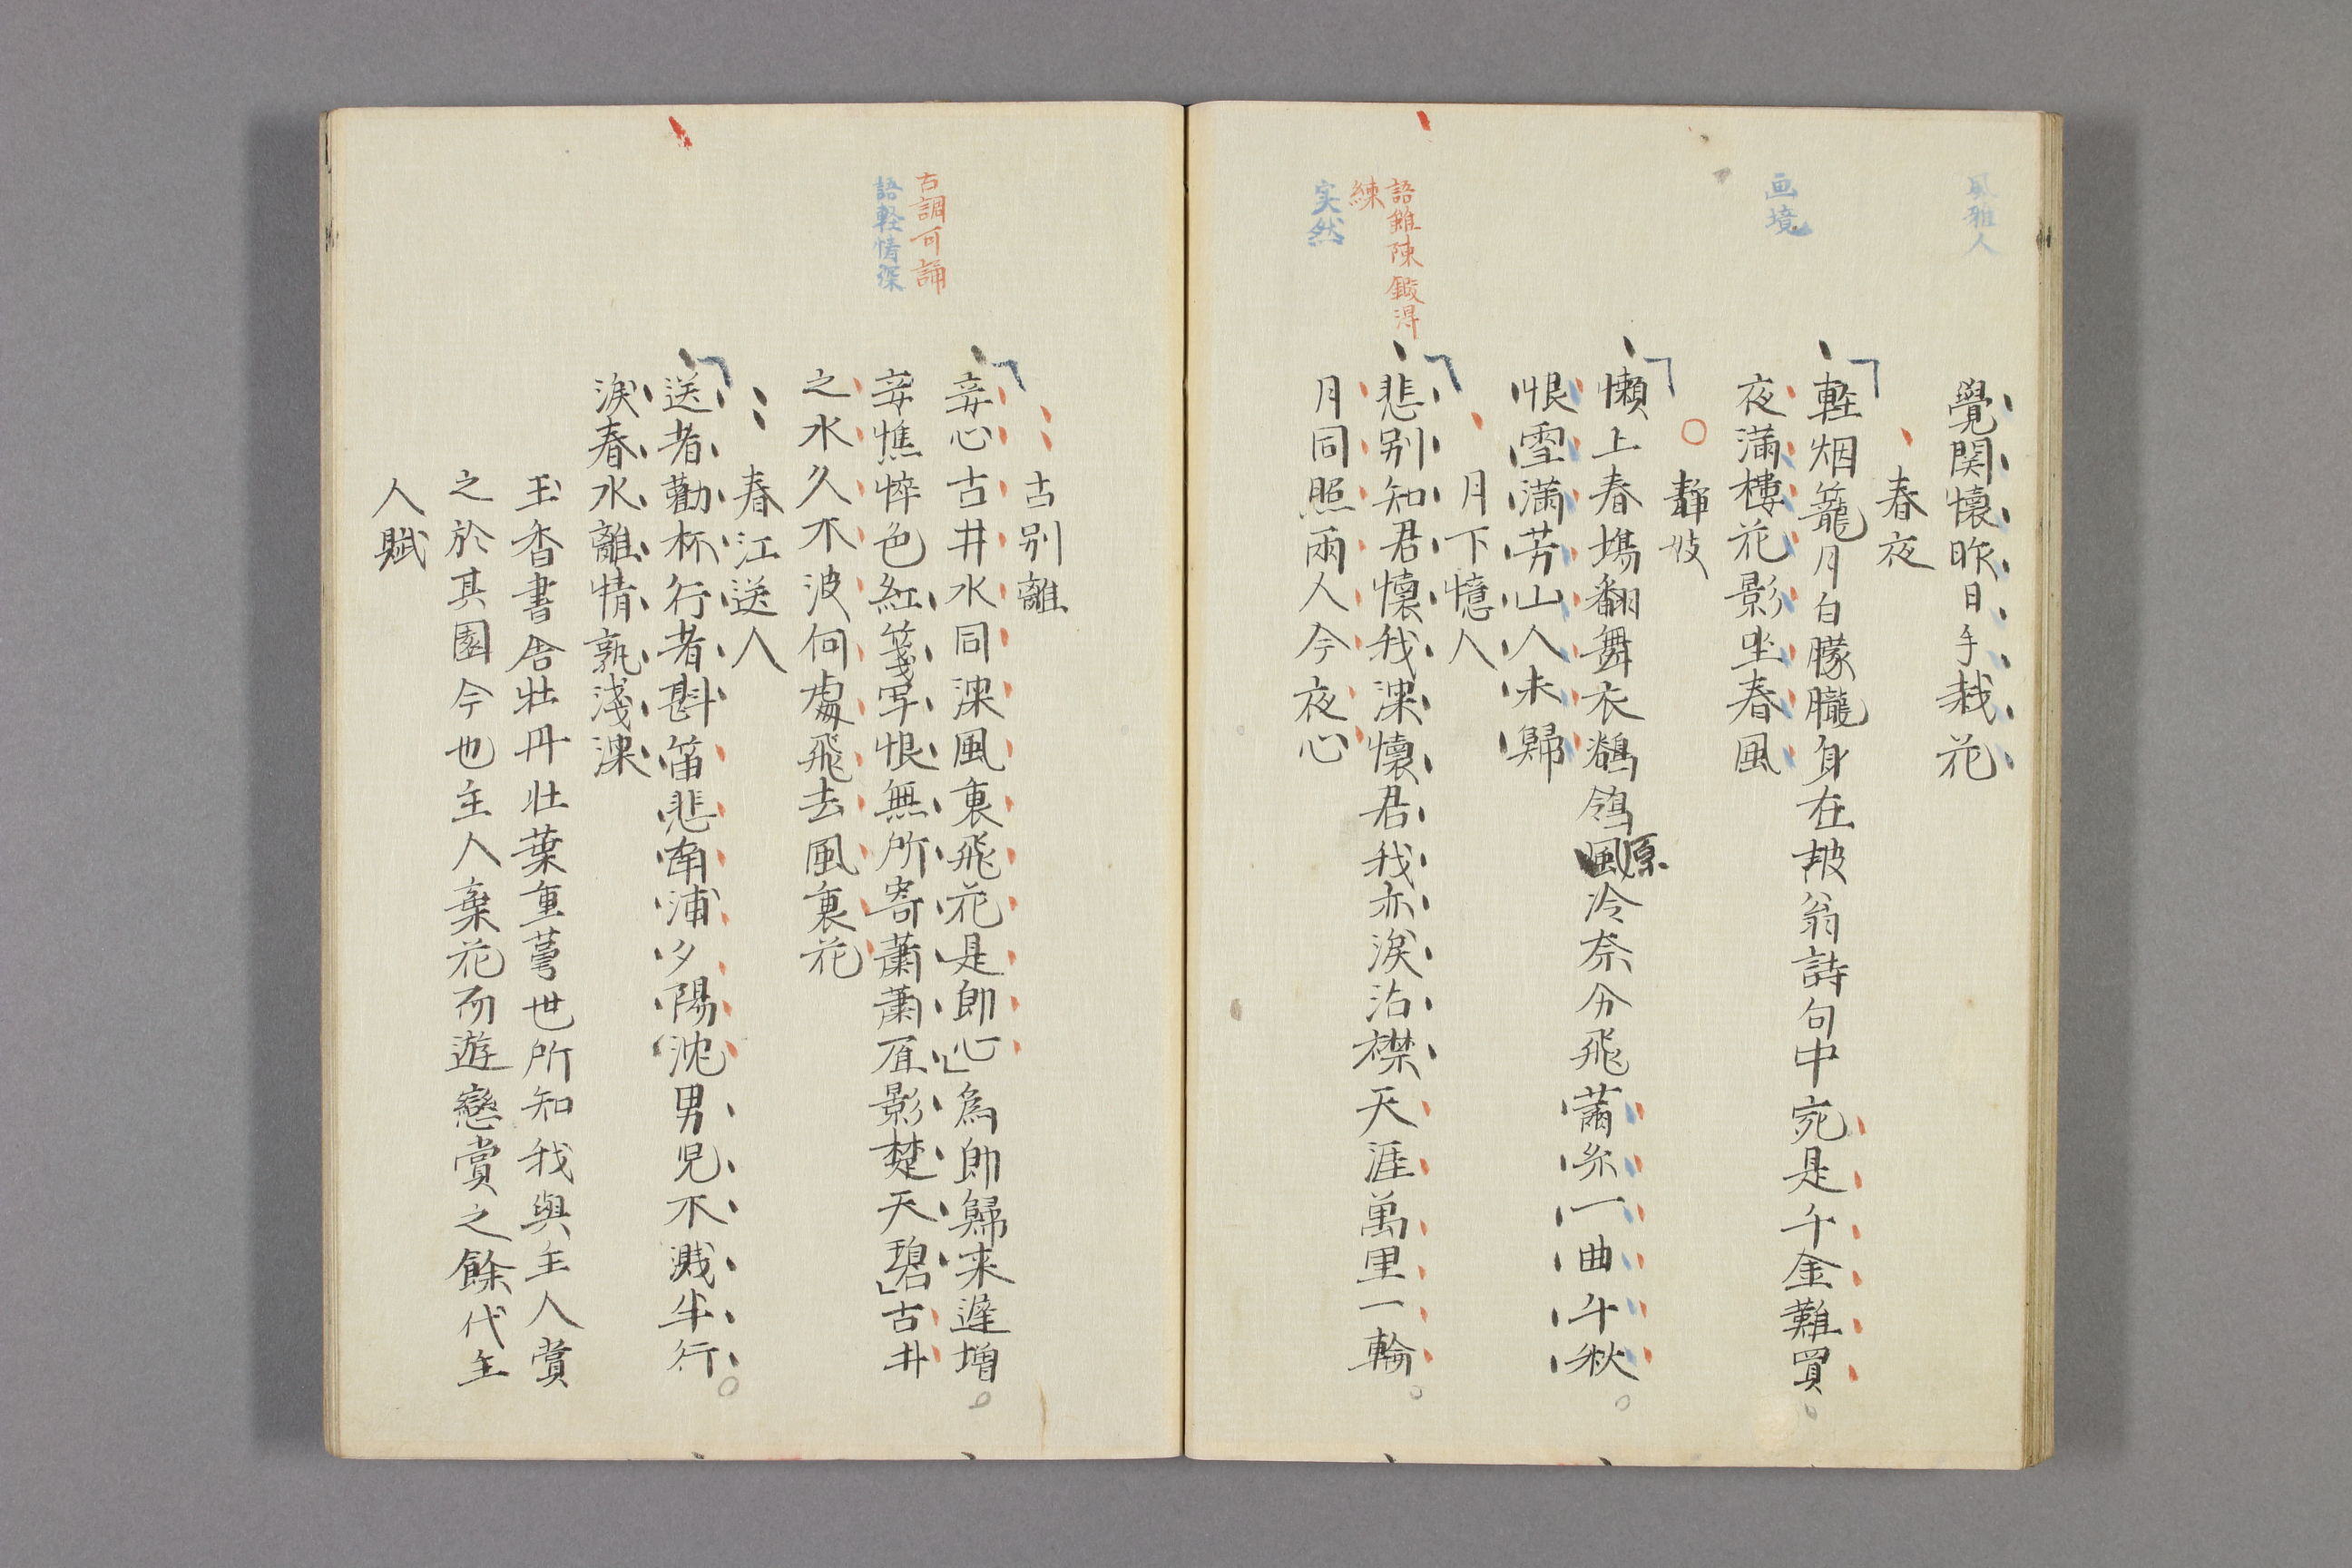 風雅人
覺関懐昨日手栽花
春夜
画境
軽烟籠月白朦朧身在坡翁詩句中宛是千金難買
夜満樓花影坐春風
靜妓
懶上春場翻舞衣鶺鴒風原冷奈分飛萧糸一曲千秋
恨雪満芳山人未歸
月下憶人
語雖陳鍛得
練
実然
悲别知君懐我深懐君我亦涙沾襟天涯萬里一輪
月同照兩人今夜心
古别離
古調可誦
語軽情深
妾心古井水同深風裏飛花是郎心為郎歸来遅增
妾憔悴色紅箋写恨無所寄蕭蕭眉影楚天碧古井
之水久不波何處飛去風裏花
春江送人
送者勸杯行者斟笛悲南浦夕陽沈男児不濺半行
涙春水離情孰淺深
玉杳書舎牡丹壮葉重萼世所知我與主人賞
之於其園今也主人棄花而遊戀賞之餘代主
人賦